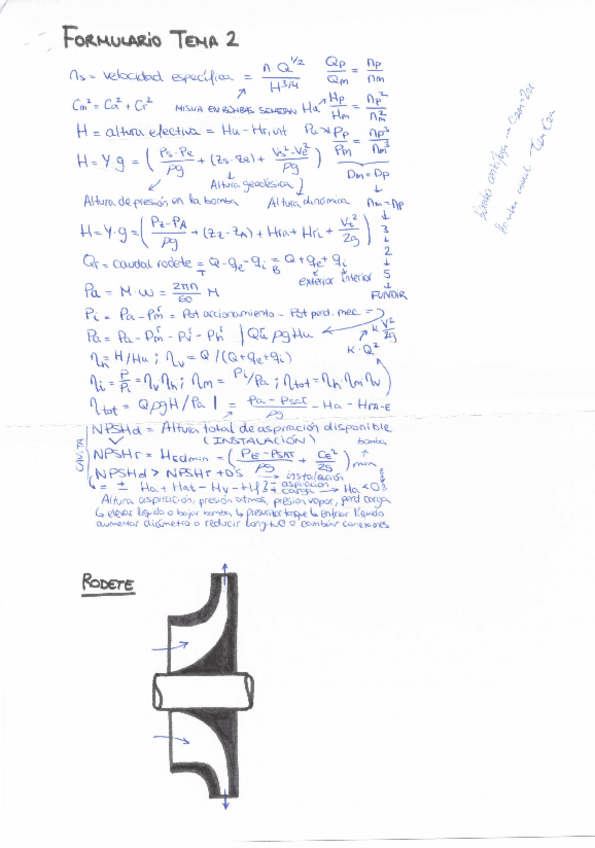 FORMULARIO TEMA 2
ns = velocidad específica = n·Q^1/2 / H^3/4   Qp/Qm = np/nm
Cm² = Ca² + Cr²   MISMA EN BOMBAS SEMEJAN   Hu → Hp/Hm = np²/nm²
H = altura efectiva = Hu - Hr,int   Pa → Pp/Pm = np³/nm³
H = Y·g = ( (Ps-Pe)/ρg + (Zs-Ze) + (Vs²-Ve²)/ρg )   Dm = Dp
Altura geodésica
Altura de presión en la bomba   Altura dinámica   nm = np
H = Y·g = ( (Pz-PA)/ρg + (Zz-ZA) + HrA + Hri + Vt²/2g )   ↓ 3 ↓ 2
Qr = caudal rodete = Q - qe - qi = Q + qe + qi   ↓ 5
T   B   exterior   interior   ↓
Pa = M·ω = 2πn/60 M   FUNDIR
Pi = Pa - Pmr = Pot accionamiento - Pot perd. mec
Pa = Pa - Pmr - Pvr - Phr | Qr ρgHu   K V²/2g
K·Q²
ηh = H/Hu ; ηv = Q/(Q+qe+qi)
ηi = P/Pi = ηvηh ; ηm = Pi/Pa ; (ηtot = ηh·ηm·ηv)
ηtot = QρgH/Pa | = (Pa - PSAT)/ρg - Ha - HrA-E
NPSHd = Altura total de aspiración disponible
(INSTALACIÓN)   bomba
CAVITA
NPSHr = Hcdmin = ( (PE - PSAT)/ρg + CE²/2g ) min
NPSHd > NPSHr + 0'5 → instalación
= ± Ha + Hat - Hv - Hf   - aspiración
+ carga → Ha < 0
Altura aspiración, presión atmos, presión vapor, perd carga
↳ elevar líquido o bajar bomba ↳ presurizar tanque ↳ enfriar líquido
aumentar diámetro o reducir longitud o cambiar conexiones
RODETE